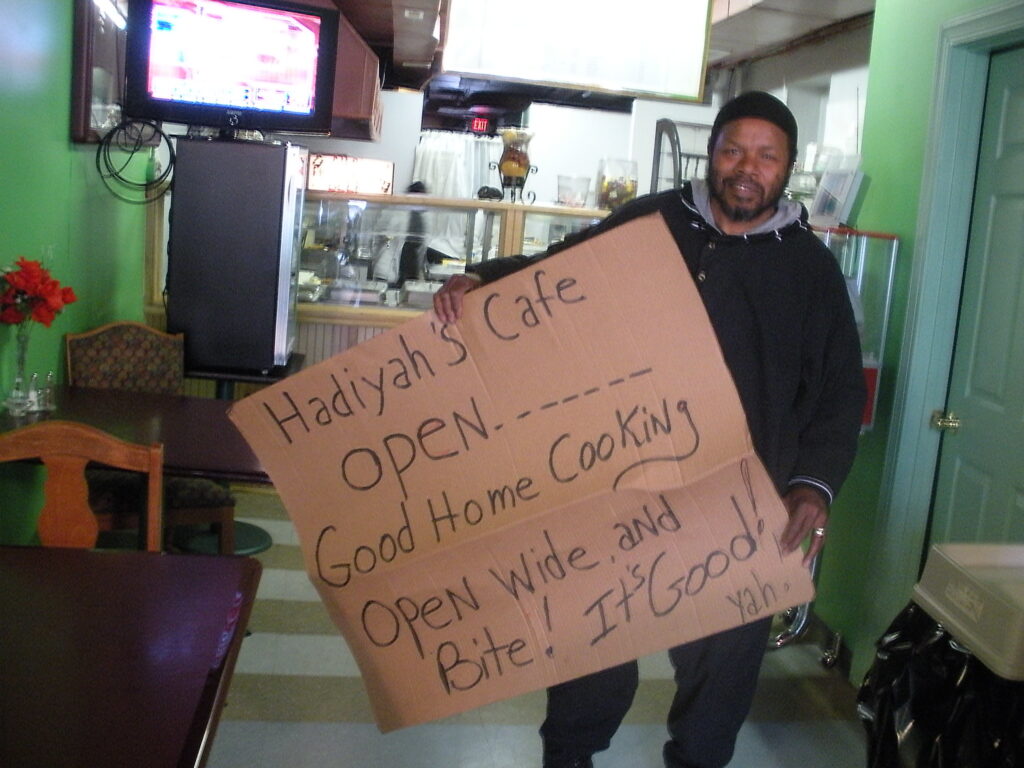 EXIT
Hadiyah's Cafe
OPEN.-------
Good Home Cooking
OPEN Wide. and
Bite! It's Good!!
Yah.